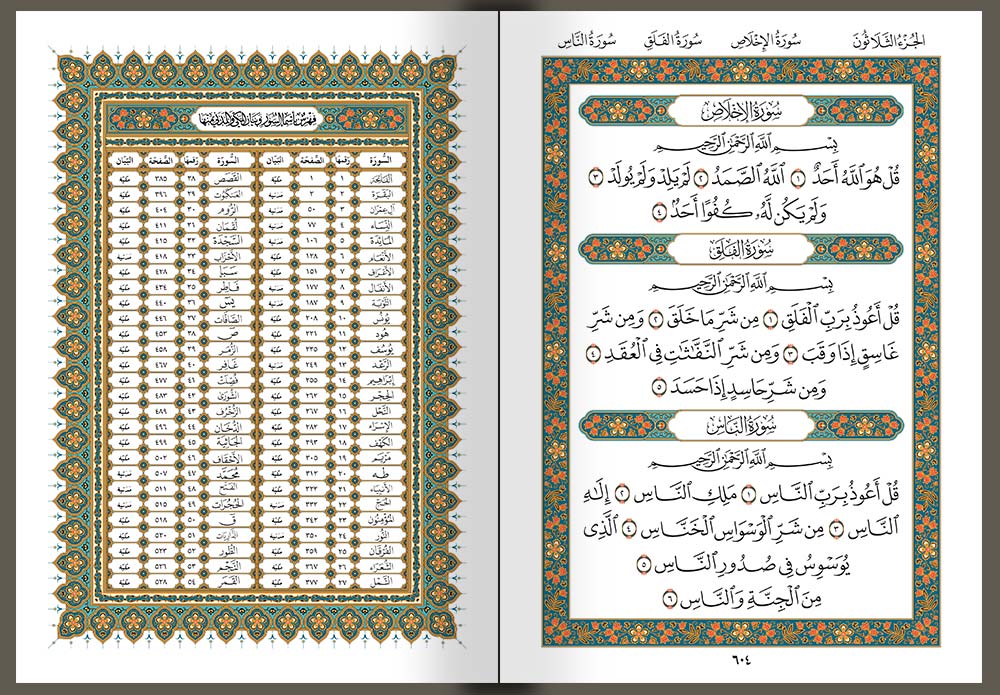 الجُزْءُ الثَّلَاثُونَ سُورَةُ الإِخْلَاصِ سُورَةُ الفَلَقِ سُورَةُ النَّاسِ
سُورَةُ الإِخْلَاصِ
بِسْمِ ٱللَّهِ ٱلرَّحْمَٰنِ ٱلرَّحِيمِ
قُلْ هُوَ ٱللَّهُ أَحَدٌ ١ ٱللَّهُ ٱلصَّمَدُ ٢ لَمْ يَلِدْ وَلَمْ يُولَدْ ٣
وَلَمْ يَكُن لَّهُۥ كُفُوًا أَحَدٌۢ ٤
سُورَةُ الفَلَقِ
بِسْمِ ٱللَّهِ ٱلرَّحْمَٰنِ ٱلرَّحِيمِ
قُلْ أَعُوذُ بِرَبِّ ٱلْفَلَقِ ١ مِن شَرِّ مَا خَلَقَ ٢ وَمِن شَرِّ
غَاسِقٍ إِذَا وَقَبَ ٣ وَمِن شَرِّ ٱلنَّفَّٰثَٰتِ فِى ٱلْعُقَدِ ٤
وَمِن شَرِّ حَاسِدٍ إِذَا حَسَدَ ٥
سُورَةُ النَّاسِ
بِسْمِ ٱللَّهِ ٱلرَّحْمَٰنِ ٱلرَّحِيمِ
قُلْ أَعُوذُ بِرَبِّ ٱلنَّاسِ ١ مَلِكِ ٱلنَّاسِ ٢ إِلَٰهِ
ٱلنَّاسِ ٣ مِن شَرِّ ٱلْوَسْوَاسِ ٱلْخَنَّاسِ ٤ ٱلَّذِى
يُوَسْوِسُ فِى صُدُورِ ٱلنَّاسِ ٥
مِنَ ٱلْجِنَّةِ وَٱلنَّاسِ ٦
٦٠٤
فهرس بأسماء السور وبيان المكي والمدني منها
السُّورَة رقمها الصَّفحَة البَيَان السُّورَة رقمها الصَّفحَة البَيَان
الفَاتِحَة ١ ١ مكيّة القَصَص ٢٨ ٣٨٥ مكيّة
البَقَرَة ٢ ٢ مدنية العَنكبوت ٢٩ ٣٩٦ مكيّة
آل عِمرَان ٣ ٥٠ مدنية الرُّوم ٣٠ ٤٠٤ مكيّة
النِّسَاء ٤ ٧٧ مدنية لُقمَان ٣١ ٤١١ مكيّة
المَائدة ٥ ١٠٦ مدنية السَّجْدَة ٣٢ ٤١٥ مكيّة
الأنعَام ٦ ١٢٨ مكيّة الأحزَاب ٣٣ ٤١٨ مدنية
الأعرَاف ٧ ١٥١ مكيّة سَبَأ ٣٤ ٤٢٨ مكيّة
الأنفَال ٨ ١٧٧ مدنية فَاطِر ٣٥ ٤٣٤ مكيّة
التَّوبَة ٩ ١٨٧ مدنية يسٓ ٣٦ ٤٤٠ مكيّة
يُونُس ١٠ ٢٠٨ مكيّة الصَّافات ٣٧ ٤٤٦ مكيّة
هُود ١١ ٢٢١ مكيّة صٓ ٣٨ ٤٥٣ مكيّة
يُوسُف ١٢ ٢٣٥ مكيّة الزُّمَر ٣٩ ٤٥٨ مكيّة
الرَّعْد ١٣ ٢٤٩ مدنية غَافِر ٤٠ ٤٦٧ مكيّة
إبراهِيم ١٤ ٢٥٥ مكيّة فُصِّلَت ٤١ ٤٧٧ مكيّة
الحِجْر ١٥ ٢٦٢ مكيّة الشُّورَىٰ ٤٢ ٤٨٣ مكيّة
النَّحْل ١٦ ٢٦٧ مكيّة الزُّخْرُف ٤٣ ٤٨٩ مكيّة
الإسْرَاء ١٧ ٢٨٢ مكيّة الدُّخَان ٤٤ ٤٩٦ مكيّة
الكَهْف ١٨ ٢٩٣ مكيّة الجَاثِيَة ٤٥ ٤٩٩ مكيّة
مَريَم ١٩ ٣٠٥ مكيّة الأحْقَاف ٤٦ ٥٠٢ مكيّة
طه ٢٠ ٣١٢ مكيّة مُحَمَّد ٤٧ ٥٠٧ مدنية
الأنبيَاء ٢١ ٣٢٢ مكيّة الفَتْح ٤٨ ٥١١ مدنية
الحَجّ ٢٢ ٣٣٢ مدنية الحُجُرَات ٤٩ ٥١٥ مدنية
المؤمنُون ٢٣ ٣٤٢ مكيّة قٓ ٥٠ ٥١٨ مكيّة
النُّور ٢٤ ٣٥٠ مدنية الذاريات ٥١ ٥٢٠ مكيّة
الفُرْقَان ٢٥ ٣٥٩ مكيّة الطُّور ٥٢ ٥٢٣ مكيّة
الشُّعَرَاء ٢٦ ٣٦٧ مكيّة النَّجْم ٥٣ ٥٢٦ مكيّة
النَّمْل ٢٧ ٣٧٧ مكيّة القَمَر ٥٤ ٥٢٨ مكيّة